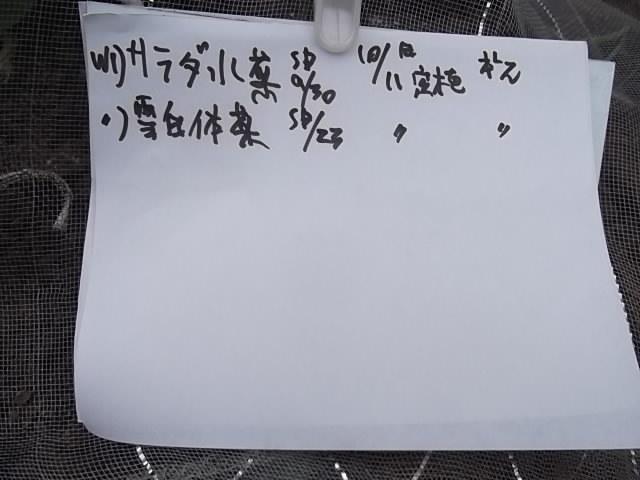 W)サラダ水菜 SD 9/30 10/11 定植 ネんス
〃)雪白体菜 SD/23 〃 〃